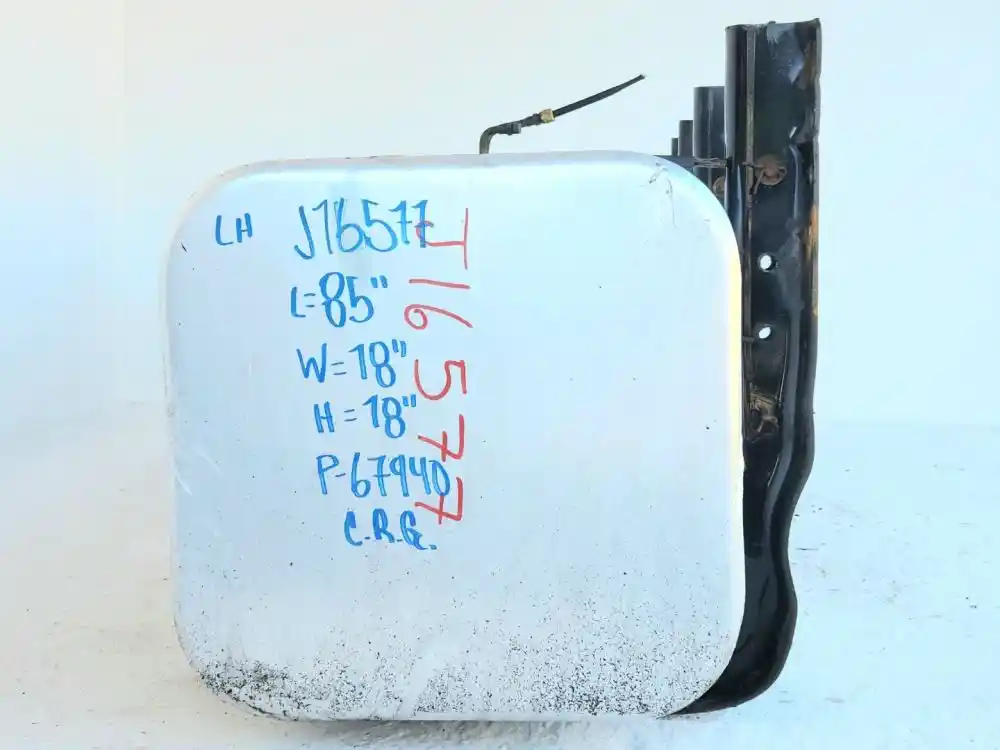 LH J16577
L=85"
W=18"
H=18"
P-67940
C.R.G.
J16577